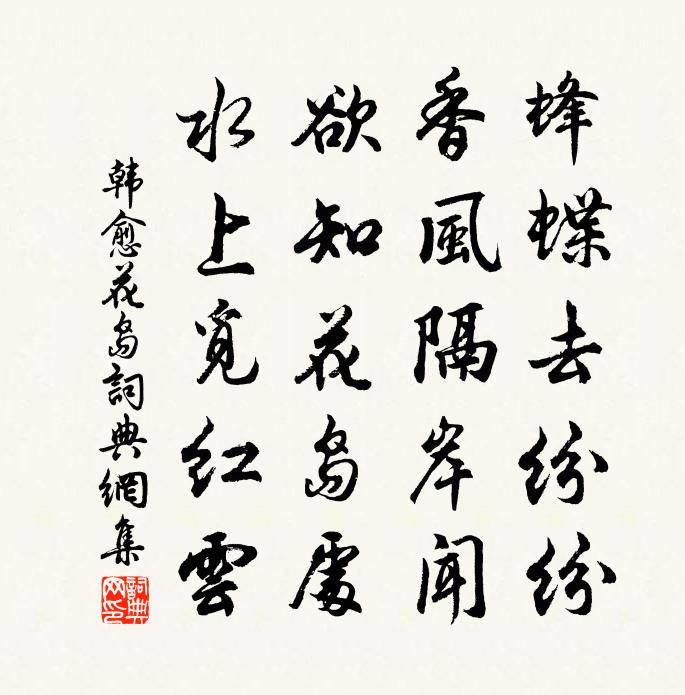 蜂蝶去紛紛
香風隔岸聞
欲知花島處
水上覓紅雲
韓愈花島詞典網集
詞典網印